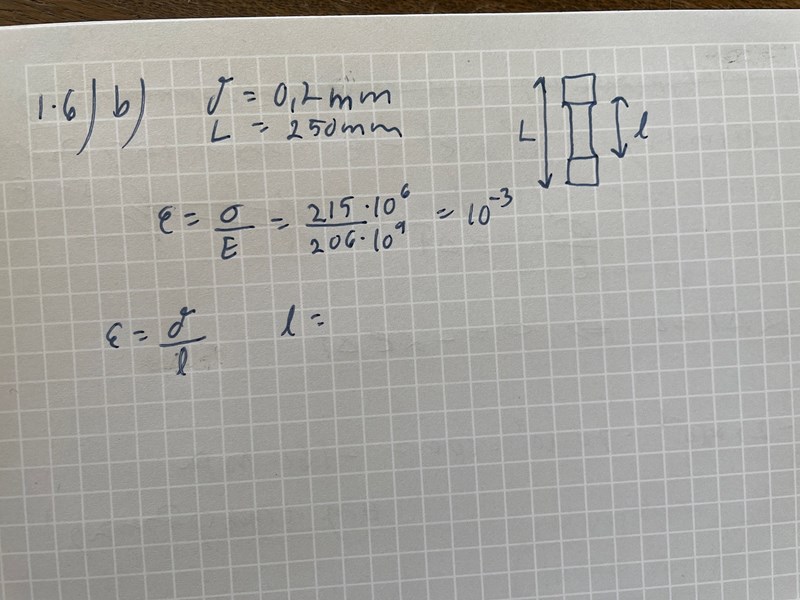 1.6) b) δ = 0,2 mm
L = 250mm
L
l
ε = σ/E = 215·10⁶/206·10⁹ = 10⁻³
ε = δ/l l =